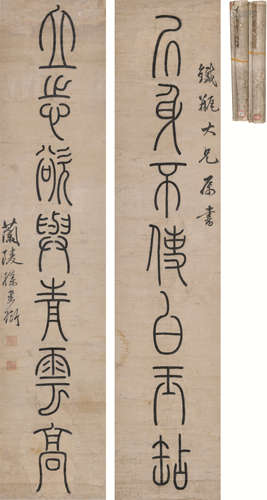 鐵瓶大兄屬書
処身不使白玉玷
立志欲與青雲高
蘭陵孫星衍